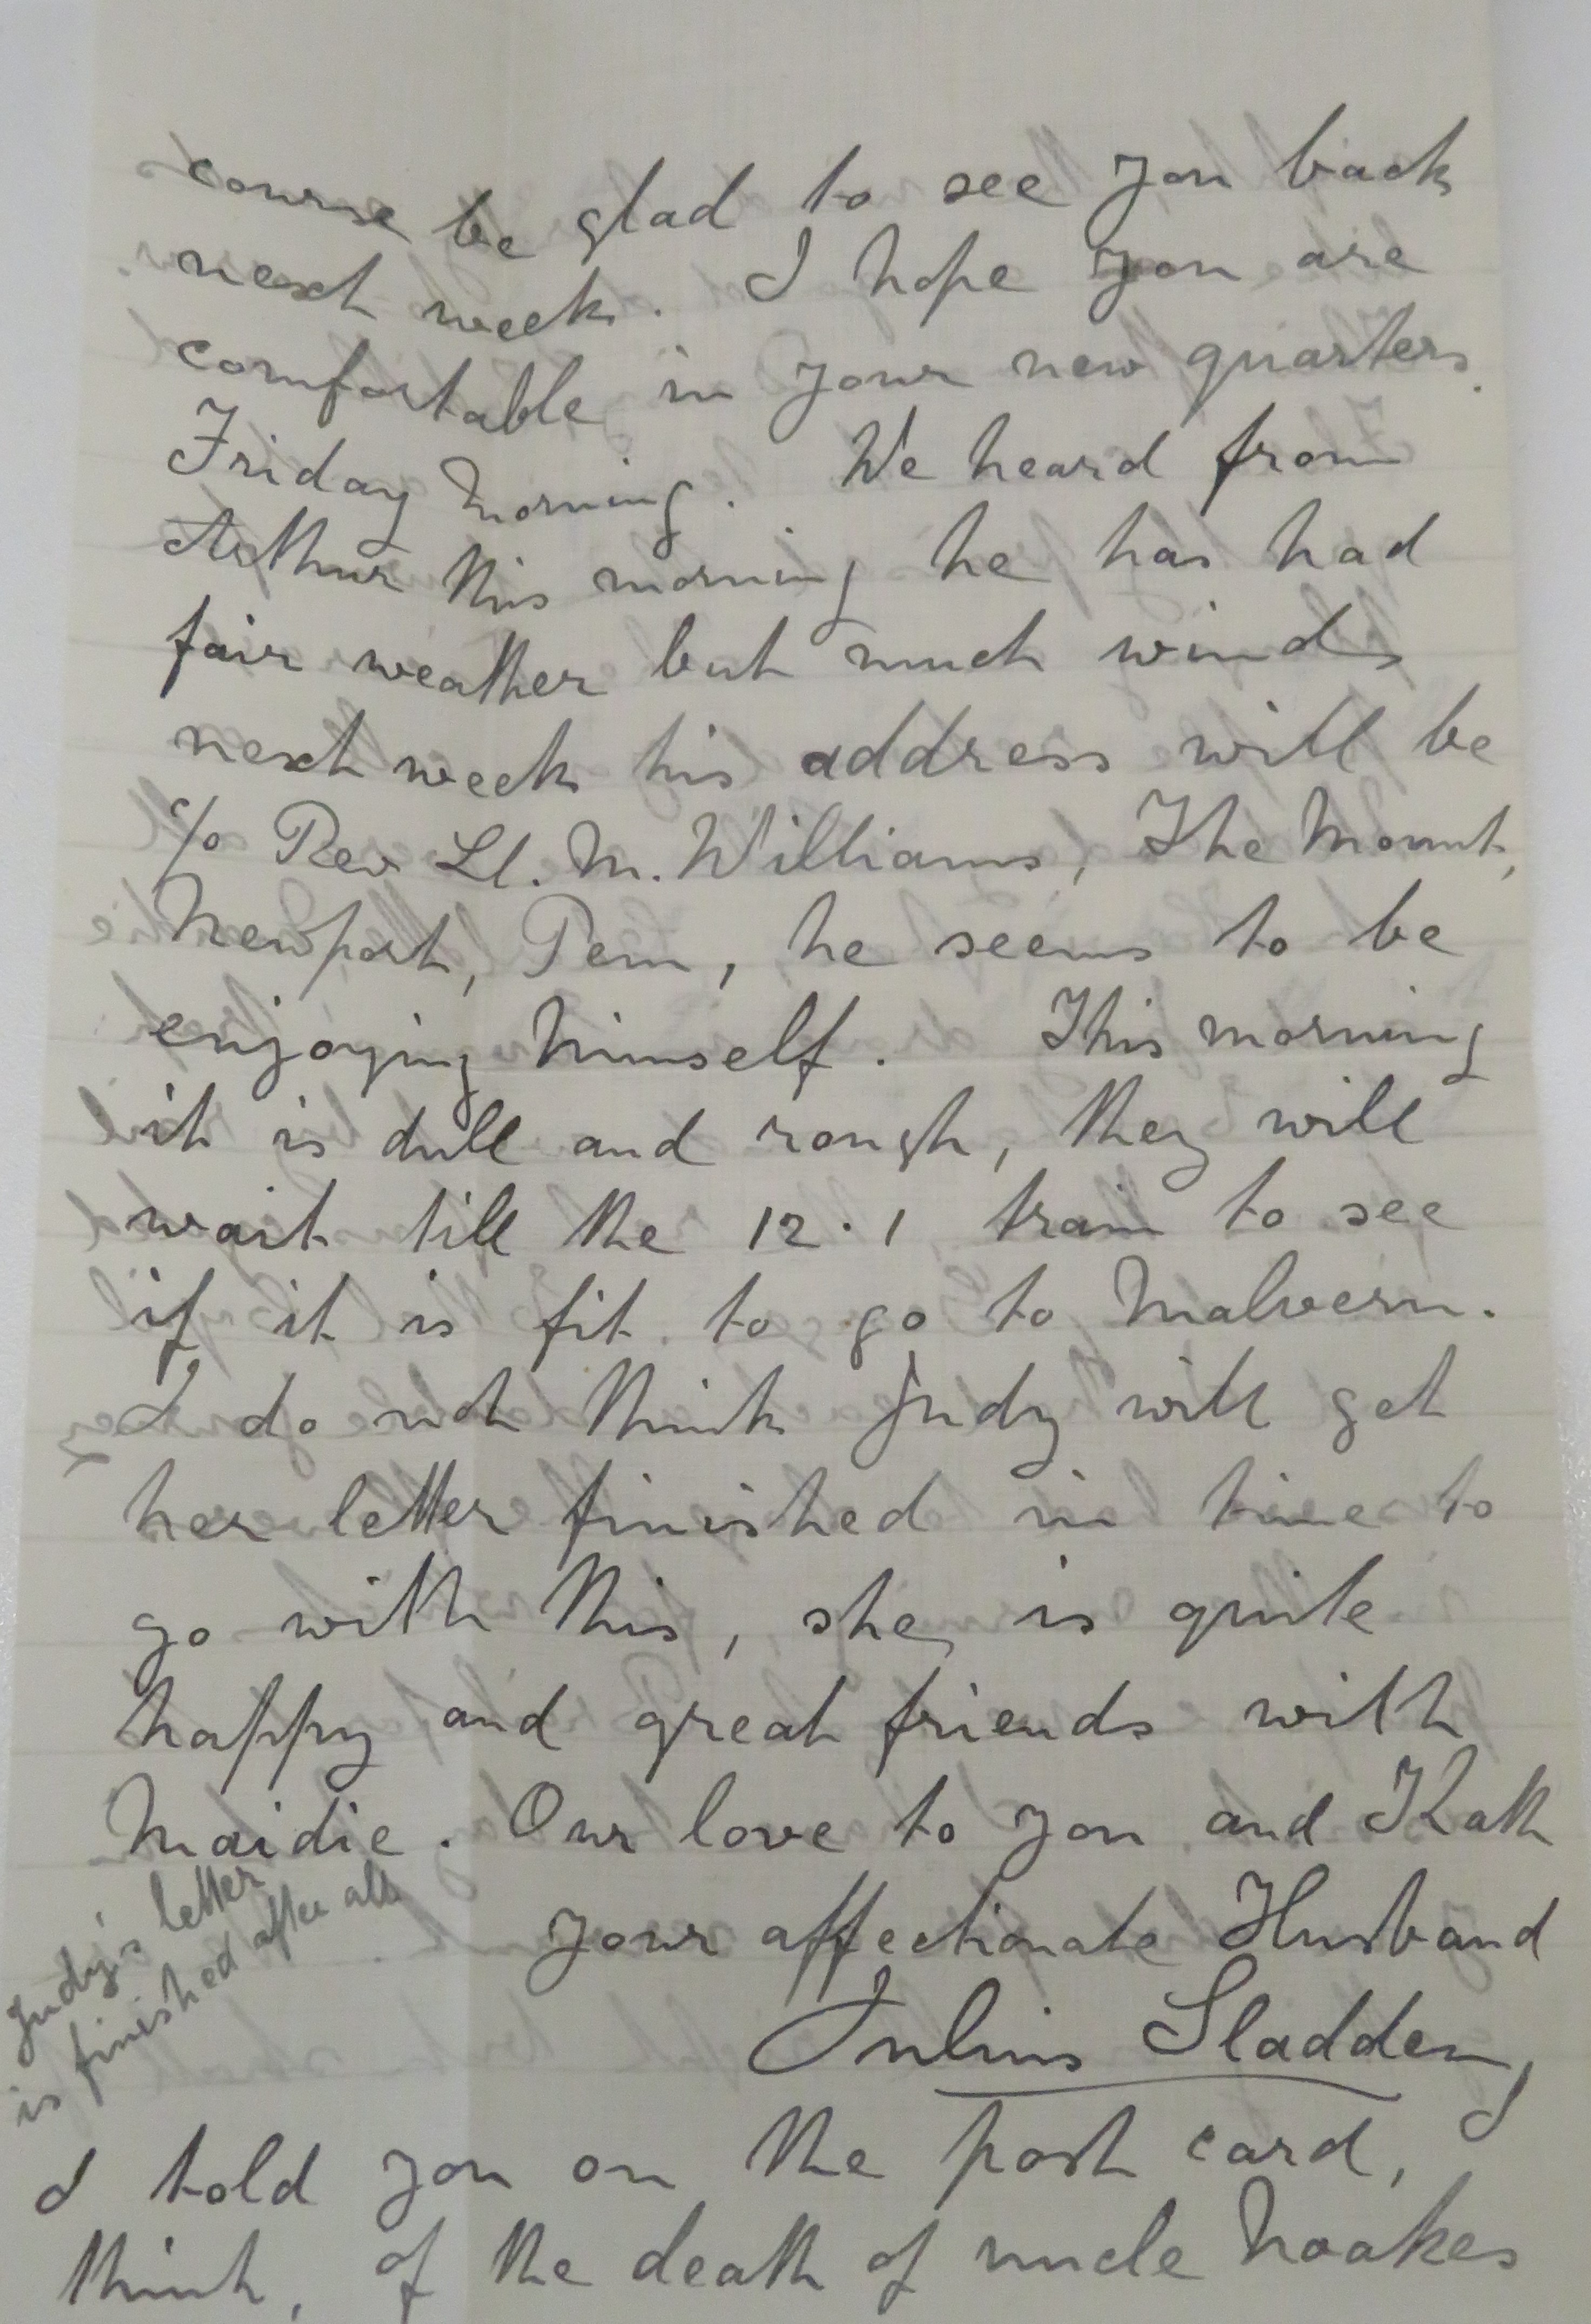 course be glad to see you back
next week. I hope you are
comfortable in your new quarters.
Friday Morning. We heard from
Arthur this morning he has had
fair weather but much wind,
next week his address will be
c/o Rev Ll. M. Williams, The Mount,
Newport, Pem, he seems to be
enjoying himself. This morning
it is dull and rough, they will
wait till the 12.1 train to see
if it is fit to go to Malvern.
I do not think Judy will get
her letter finished in time to
go with this, she is quite
happy and great friends with
Maidie. Our love to you and Kath
Judy's letter
is finished after all
your affectionate Husband
Julius Sladden
I told you on the post card, I
think, of the death of uncle Noakes